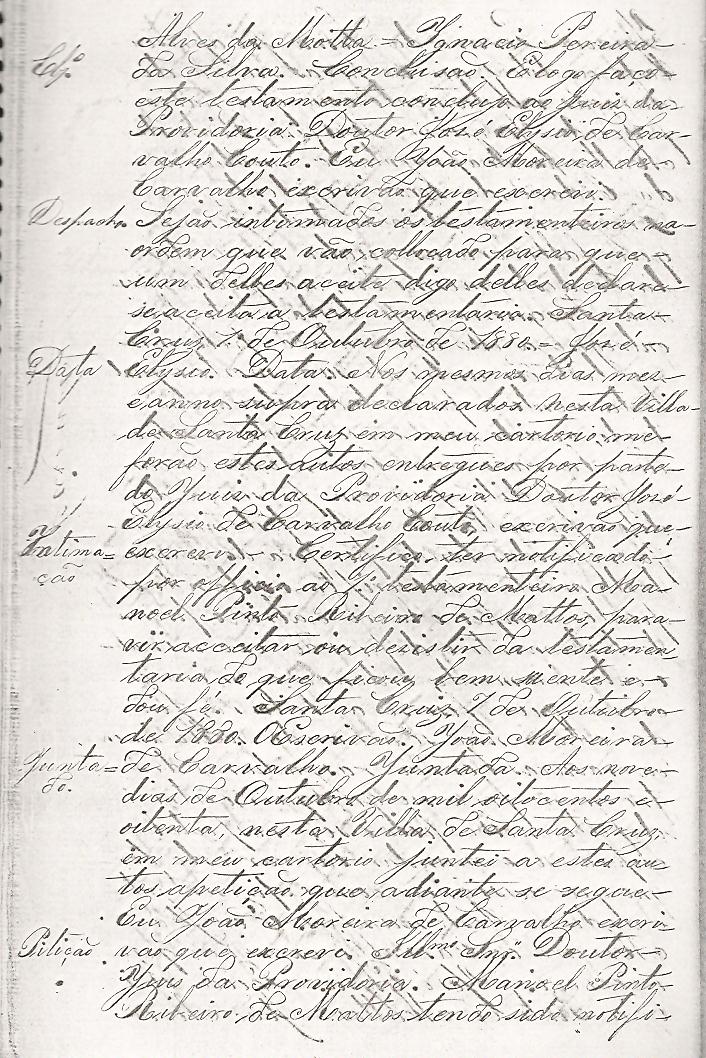 Alves da Motta = Ignacio Pereira
Clsº
da Silva. Concluisão. E logo faço
este testamento concluso ao Juis da
Providoria. Doutor José Elysio de Car-
valho Couto. Eu João Moreira de
Carvalho excrivão que escrevi.
Despacho. Sejão intimados os testamenteiros na
ordem que vão collocado para que
um delles aceite digo delles declare
se aceita a testamentaria. Santa
Cruz 7 de Outubro de 1880 = José
Data Elysio. Data. Nos mesmos dias mez
e anno supra declarados nesta Villa
de Santa Cruz em meu cartorio me
forão estes autos entregues por parte
do Juis da Providoria Doutor José
Elysio de Carvalho Couto, excrivão que
Intima= excrevi. Certifico ter notificado
ção
por officio ao 1º testamenteiro Ma-
noel Pinto Ribeiro de Mattos, para
vir acceitar ou dezistir da testamen-
taria de que ficou bem siente e
dou fé. Santa Cruz 7 de Outubro
de 1880. O Escrivão. João Moreira
Junta= de Carvalho. Juntada. Aos nove
da.
dias de Outubro de mil oitocentos e
oitenta, nesta Villa de Santa Cruz,
em meu cartorio juntei a estes au-
tos apetição que adiante se segue
Eu João Moreira de Carvalho excri-
Pitição vão que excrevi. Illmº Snrº Doutor
Juis da Providoria. Manoel Pinto
Ribeiro de Mattos tendo sido notifi-